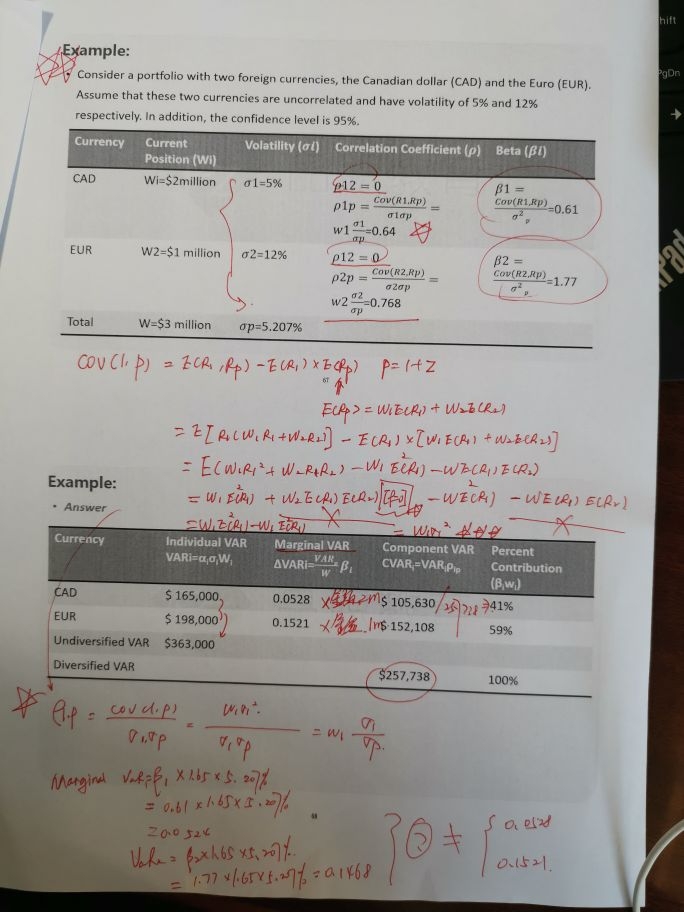 hift
PgDn
Example:
• Consider a portfolio with two foreign currencies, the Canadian dollar (CAD) and the Euro (EUR).
Assume that these two currencies are uncorrelated and have volatility of 5% and 12%
respectively. In addition, the confidence level is 95%.
Currency Current Position (Wi) Volatility (σi) Correlation Coefficient (ρ) Beta (βi)
CAD Wi=$2million σ1=5% ρ12 = 0 β1 =
ρ1p = Cov(R1,Rp)/σ1σp = Cov(R1,Rp)/σ²p=0.61
w1 σ1/σp=0.64
EUR W2=$1 million σ2=12% ρ12 = 0 β2 =
ρ2p = Cov(R2,Rp)/σ2σp = Cov(R2,Rp)/σ²p=1.77
w2 σ2/σp=0.768
Total W=$3 million σp=5.207%
COV(1,p) = E(R1,Rp) - E(R1)×E(Rp) P=1+2
67
E(Rp) = W1E(R1) + W2E(R2)
= E[R1(W1R1+W2R2)] - E(R1)×[W1E(R1) + W2E(R2)]
= E(W1R1² + W2R1R2) - W1E²(R1) - WE(R1)E(R2)
= W1E(R1²) + W2E(R1)E(R2) [ρ=0] - WE²(R1) - WE(R1)E(R2)
= W1E(R1²) - W1E²(R1) = W1σ1²
Example:
• Answer
Currency Individual VAR Marginal VAR Component VAR Percent
VARi=αiσiWi ΔVARi=VAR/W βi CVARi=VARiρip Contribution
(βiwi)
CAD $ 165,000 0.0528 × 2m $ 105,630 / 257738 → 41%
EUR $ 198,000 0.1521 × 1m $ 152,108 59%
Undiversified VAR $363,000
Diversified VAR $257,738 100%
ρ1,p = cov(1,p)/σ1,σp = W1σ1²/σ1σp = W1 σ1/σp
Marginal VaR1=β1 × 1.65 × 5.207%
= 0.61 × 1.65 × 5.207%
= 0.0524
68
= β2×1.65×5.207%
= 1.77×1.65×5.207% = 0.1468
} ? ≠ { 0.0528
0.1521.